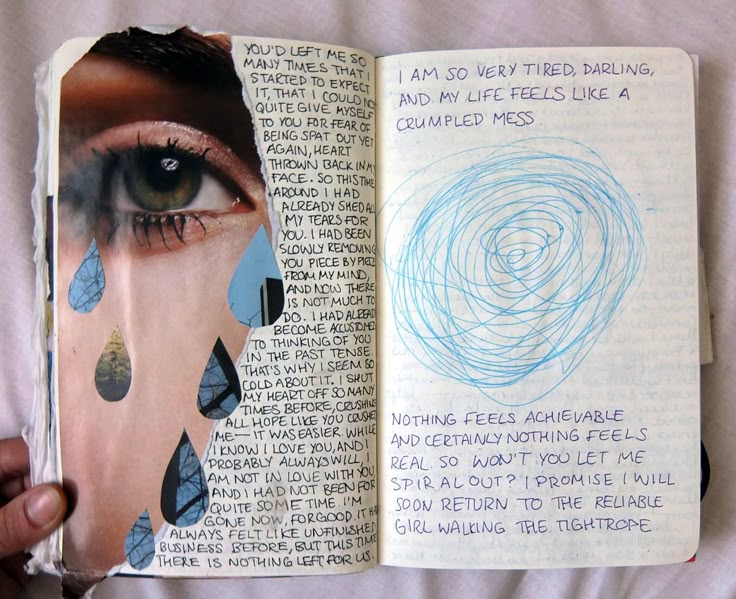 YOU'D LEFT ME SO
MANY TIMES THAT I
STARTED TO EXPECT
IT, THAT I COULD NOT
QUITE GIVE MYSELF
TO YOU FOR FEAR OF
BEING SPAT OUT YET
AGAIN, HEART
THROWN BACK IN MY
FACE. SO THIS TIME
AROUND I HAD
ALREADY SHED ALL
MY TEARS FOR
YOU. I HAD BEEN
SLOWLY REMOVING
YOU PIECE BY PIECE
FROM MY MIND,
AND NOW THERE
IS NOT MUCH TO
DO. I HAD ALREADY
BECOME ACCUSTOMED
TO THINKING OF YOU
IN THE PAST TENSE.
THAT'S WHY I SEEM SO
COLD ABOUT IT. I SHUT
MY HEART OFF SO MANY
TIMES BEFORE, CRUSHING
ALL HOPE LIKE YOU CRUSHED
ME— IT WAS EASIER. WHILE
I KNOW I LOVE YOU, AND I
PROBABLY ALWAYS WILL, I
AM NOT IN LOVE WITH YOU
AND I HAD NOT BEEN FOR
QUITE SOME TIME. I'M
GONE NOW, FOR GOOD. IT HAD
ALWAYS FELT LIKE UNFINISHED
BUSINESS BEFORE, BUT THIS TIME
THERE IS NOTHING LEFT FOR US.
I AM SO VERY TIRED, DARLING,
AND MY LIFE FEELS LIKE A
CRUMPLED MESS.
NOTHING FEELS ACHIEVABLE
AND CERTAINLY NOTHING FEELS
REAL. SO WON'T YOU LET ME
SPIRAL OUT? I PROMISE I WILL
SOON RETURN TO THE RELIABLE
GIRL WALKING THE TIGHTROPE.